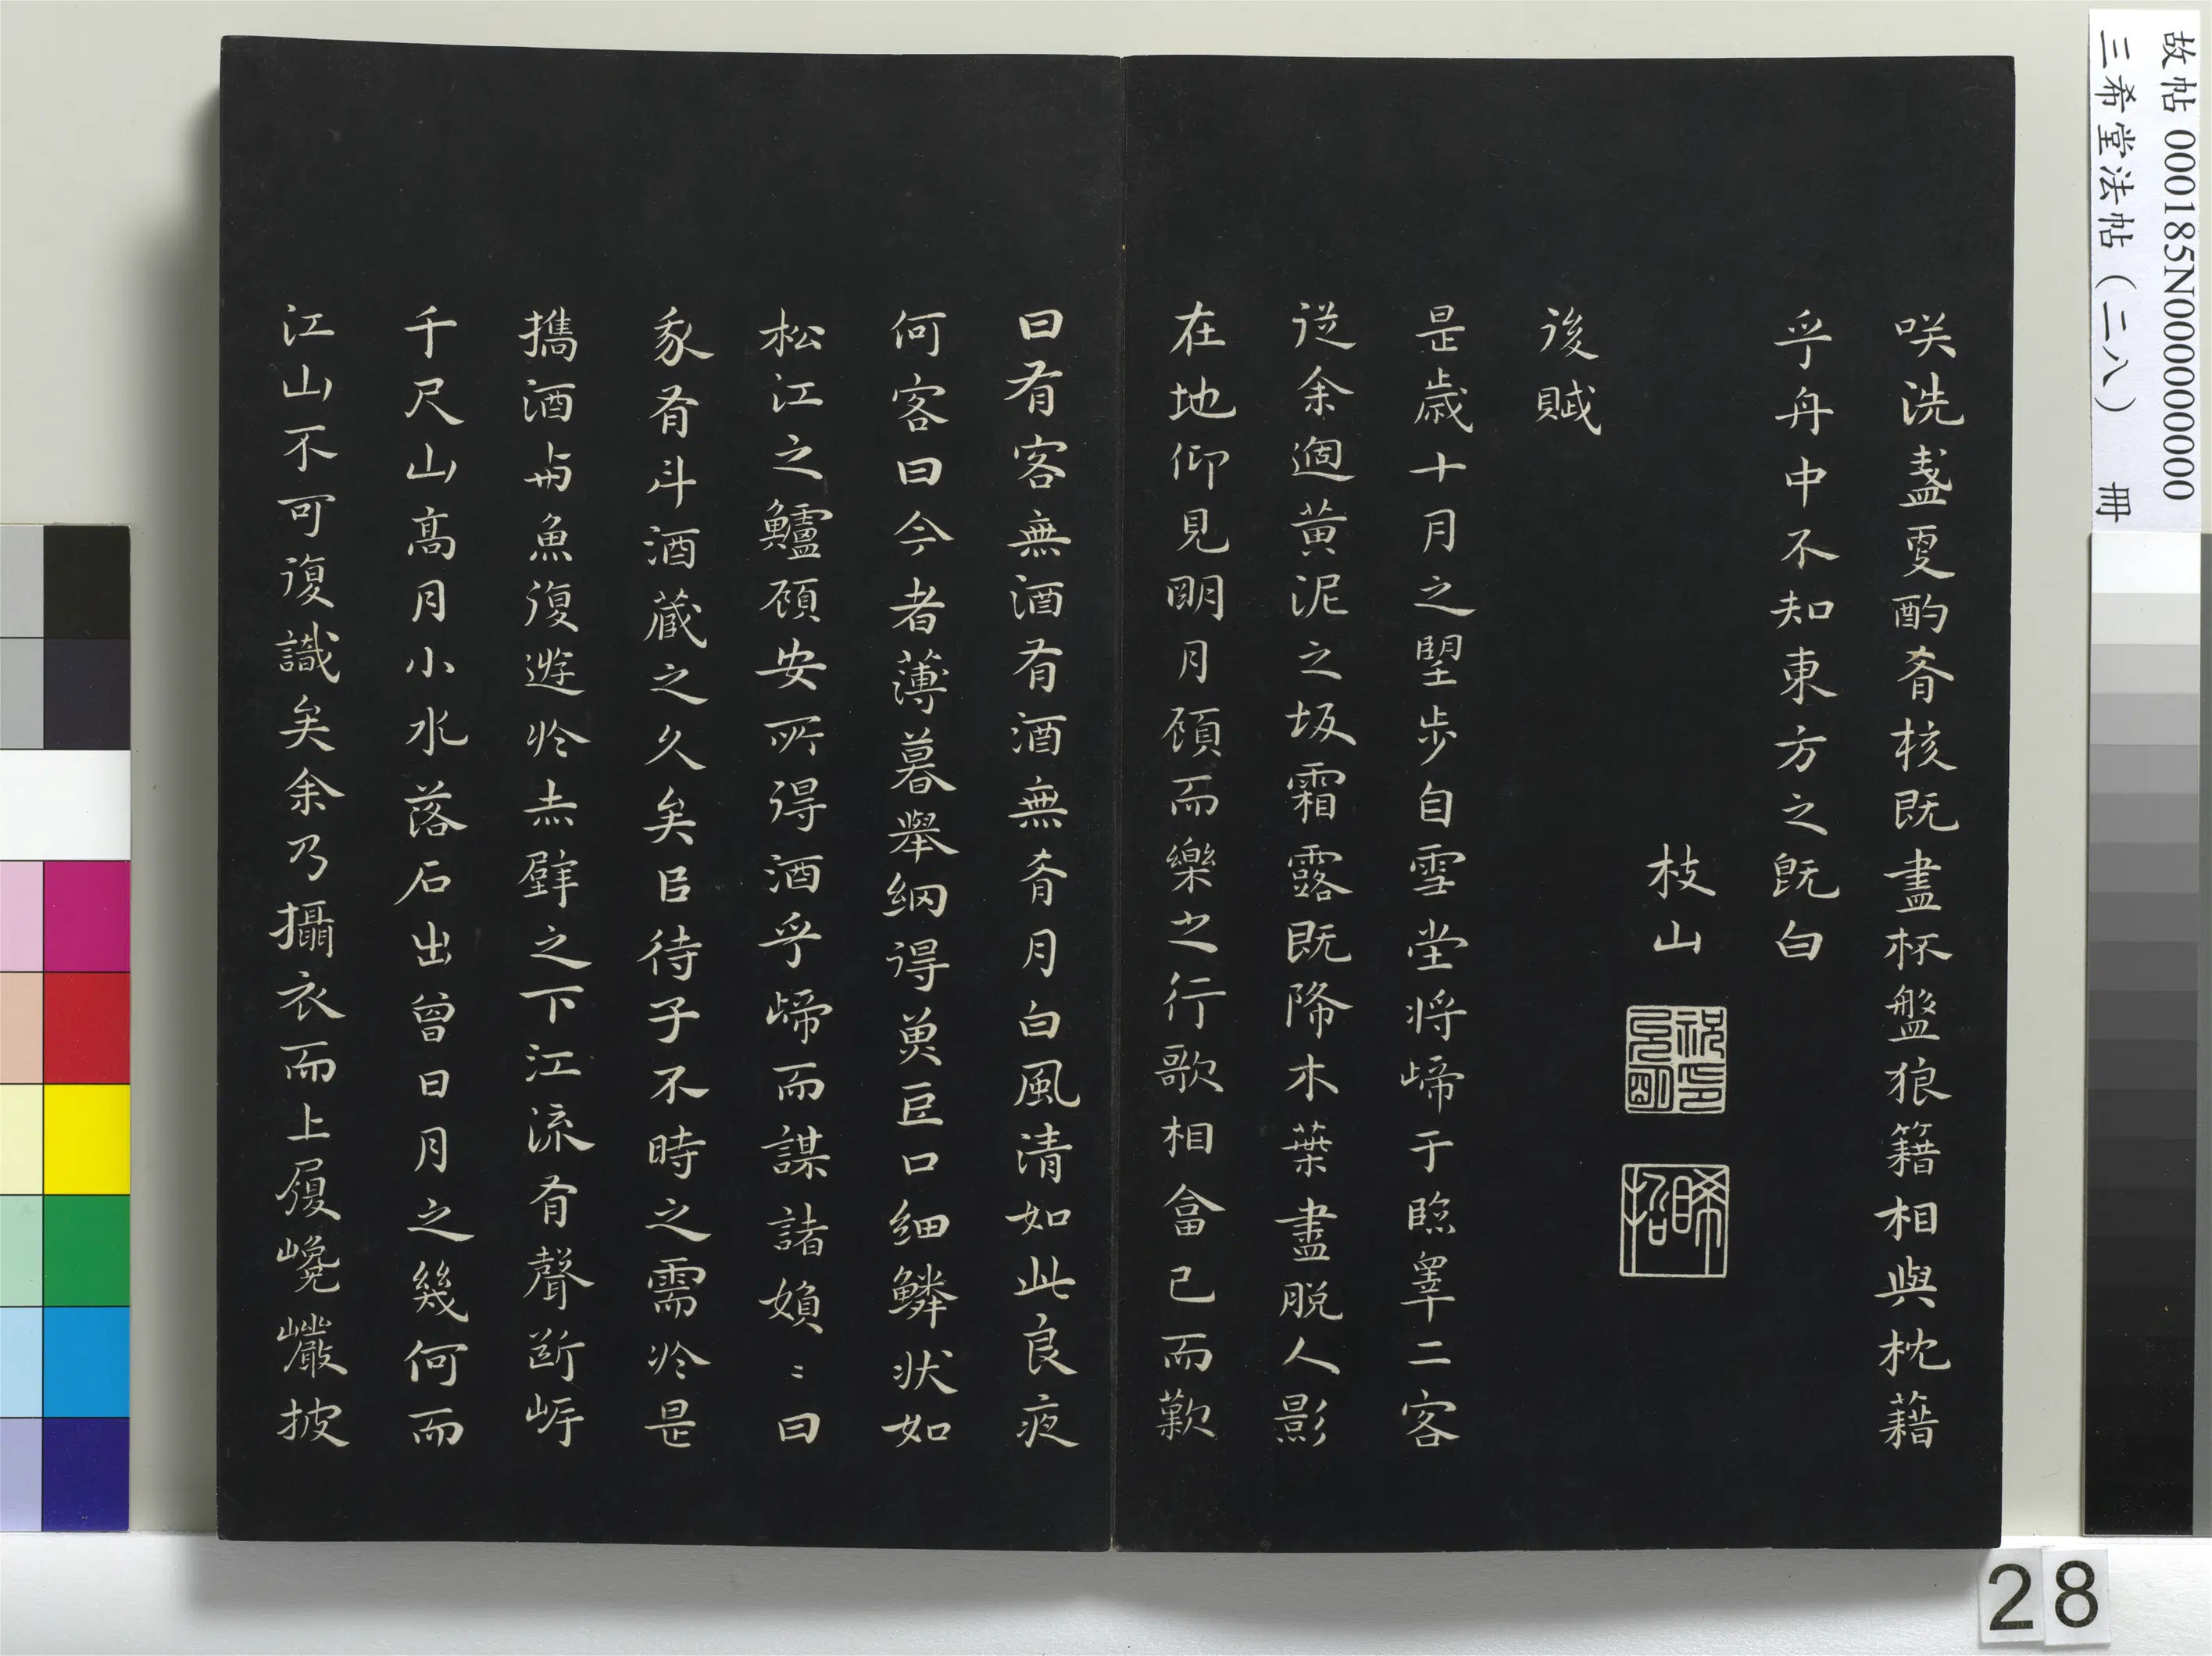 咲洗盞更酌肴核既盡杯盤狼籍相與枕藉
乎舟中不知東方之既白
枝山
祝允明印
晞哲
後賦
是歳十月之望步自雪堂将歸于臨睪二客
従余過黃泥之坂霜露既降木葉盡脱人影
在地仰見明月顧而樂之行歌相答已而歎
曰有客無酒有酒無肴月白風清如此良夜
何客曰今者薄暮舉網得魚巨口細鱗状如
松江之鱸顧安所得酒乎歸而謀諸婦〻曰
我有斗酒蔵之久矣以待子不時之需於是
攜酒与魚復遊於赤壁之下江流有聲断岸
千尺山髙月小水落石出曾日月之幾何而
江山不可復識矣余乃攝衣而上履巉巖披
故帖 000185N000000000
三希堂法帖（二八） 冊
28